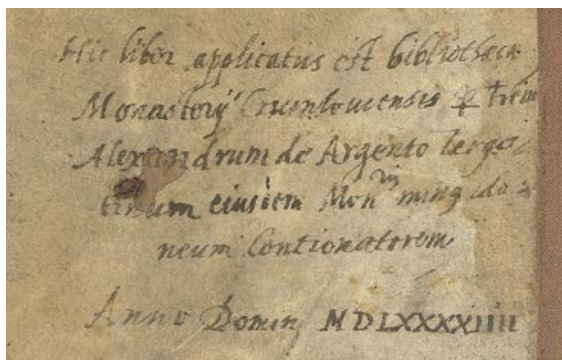 Hic liber applicatus est bibliothecæ
Monasterij Crumlouiensis
Alexandrum de Argento
tinum eiusdem Mon
neum Contionatorem
Anno Domini MDLXXXXIIII